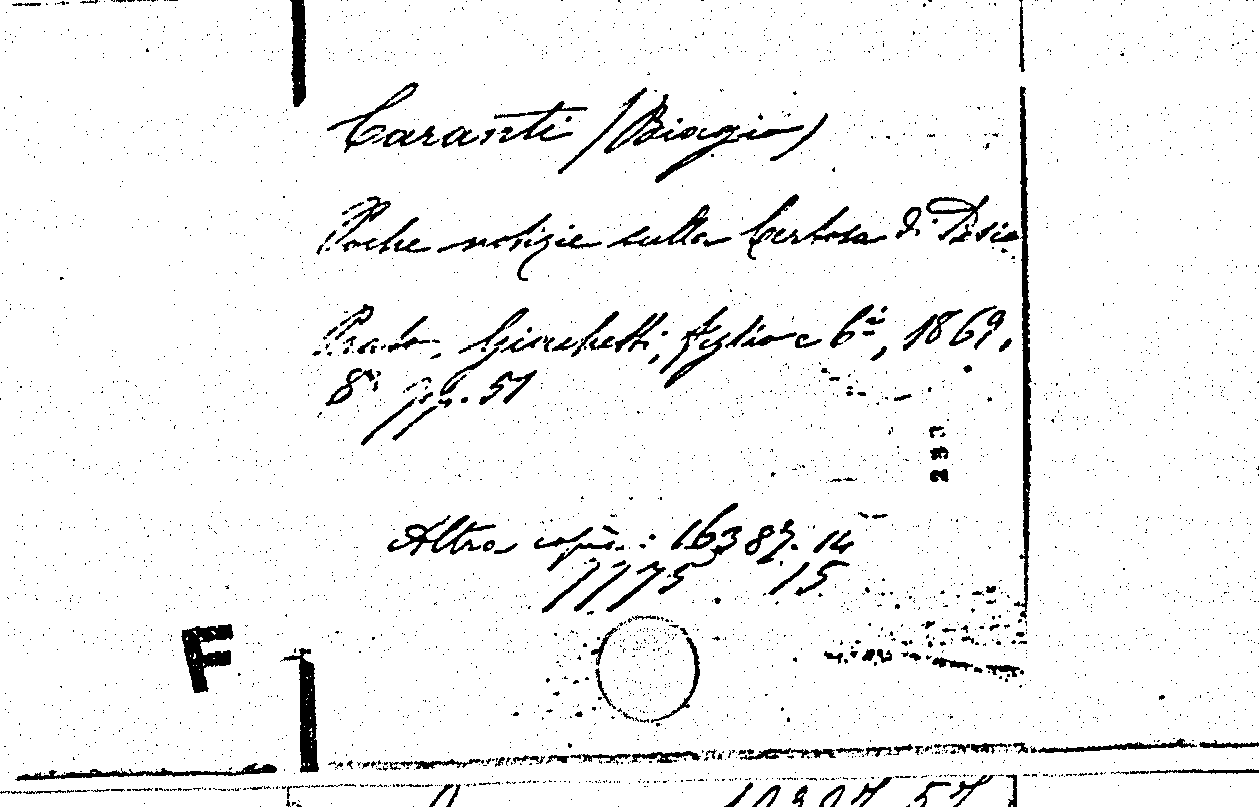 Caranti (Biagio)
Poche notizie sulla Certosa di Pesio
Prato, Giachetti, figlio e Cⁱ, 1869,
8° pp. 51
293
Altra copia: 16387. 14
7775. 15
F
10307.57